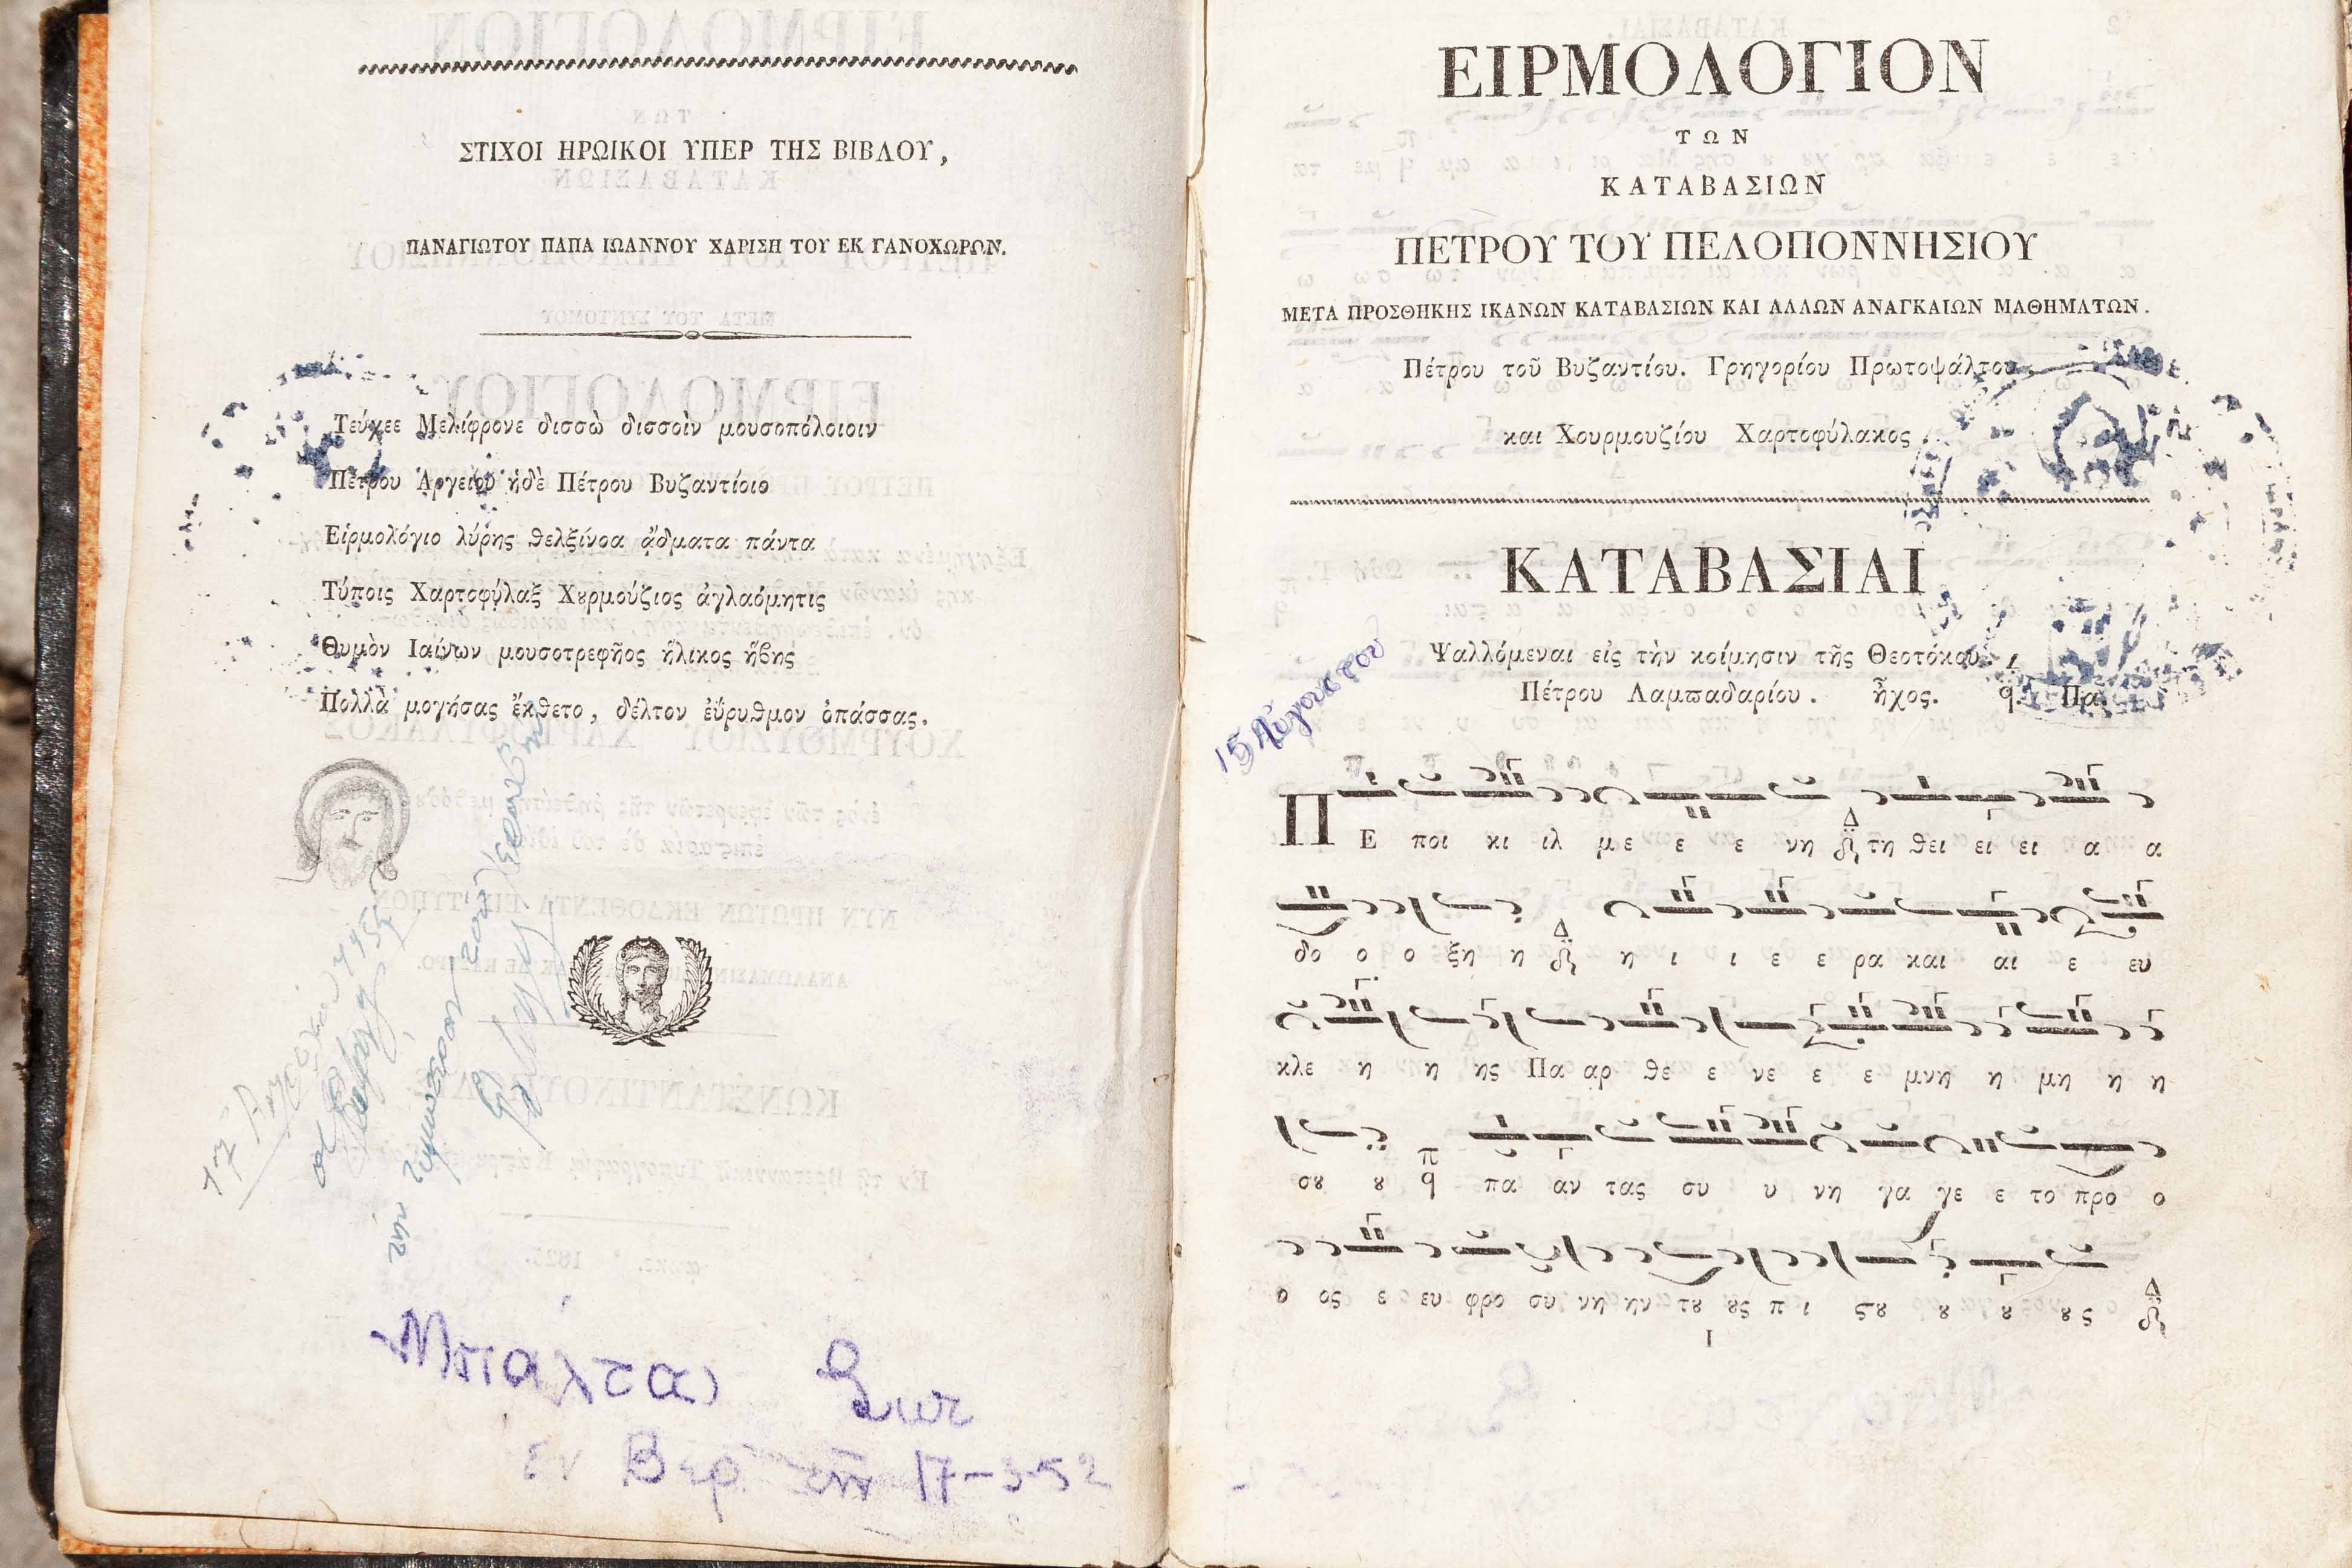 ΣΤΙΧΟΙ ΗΡΩΙΚΟΙ ΥΠΕΡ ΤΗΣ ΒΙΒΛΟΥ,
ΠΑΝΑΓΙΩΤΟΥ ΠΑΠΑ ΙΩΑΝΝΟΥ ΧΑΡΙΣΗ ΤΟΥ ΕΚ ΓΑΝΟΧΩΡΩΝ.
Τεύχεε Μελίφρονε δισσὼ δισσοὶν μουσοπόλοιοιν
Πέτρου Ἀργείου ἠδὲ Πέτρου Βυζαντίοιο
Εἱρμολόγιο λύρης θελξίνοα ᾄδματα πάντα
Τύποις Χαρτοφύλαξ Χȣρμούζιος ἀγλαόμητις
Θυμὸν Ιαίνων μουσοτρεφῆος ἥλικος ἥβης
Πολλὰ μογήσας ἔκθετο, δέλτον ἐΰρυθμον ὀπάσσας.
Μπάλτας Σωτ
ἐν Βερ 17-3-52
ΕΙΡΜΟΛΟΓΙΟΝ
ΤΩΝ
ΚΑΤΑΒΑΣΙΩΝ
ΠΕΤΡΟΥ ΤΟΥ ΠΕΛΟΠΟΝΝΗΣΙΟΥ
ΜΕΤΑ ΠΡΟΣΘΗΚΗΣ ΙΚΑΝΩΝ ΚΑΤΑΒΑΣΙΩΝ ΚΑΙ ΑΛΛΩΝ ΑΝΑΓΚΑΙΩΝ ΜΑΘΗΜΑΤΩΝ.
Πέτρου τοῦ Βυζαντίου. Γρηγορίου Πρωτοψάλτου
και Χουρμουζίου Χαρτοφύλακος.
ΚΑΤΑΒΑΣΙΑΙ
15 Αὐγούστου
Ψαλλόμεναι εἰς τὴν κοίμησιν τῆς Θεοτόκου.
Πέτρου Λαμπαδαρίου. ἦχος. Πα
Π Ε ποι κι ιλ με ε ε νη τη θει ει ει α α
δο ο ο ξη η η ι ι ε ε ρα και αι ε ευ
κλε η η ης Πα αρ θε ε νε ε ε μνη η μη η η
σȣ ȣ πα αν τας συ υ νη γα γε ε το προ ο
ο ος ε ευ φρο συ νη ην τȣ ȣς π ι ϛȣ ȣ ȣ ȣς
I